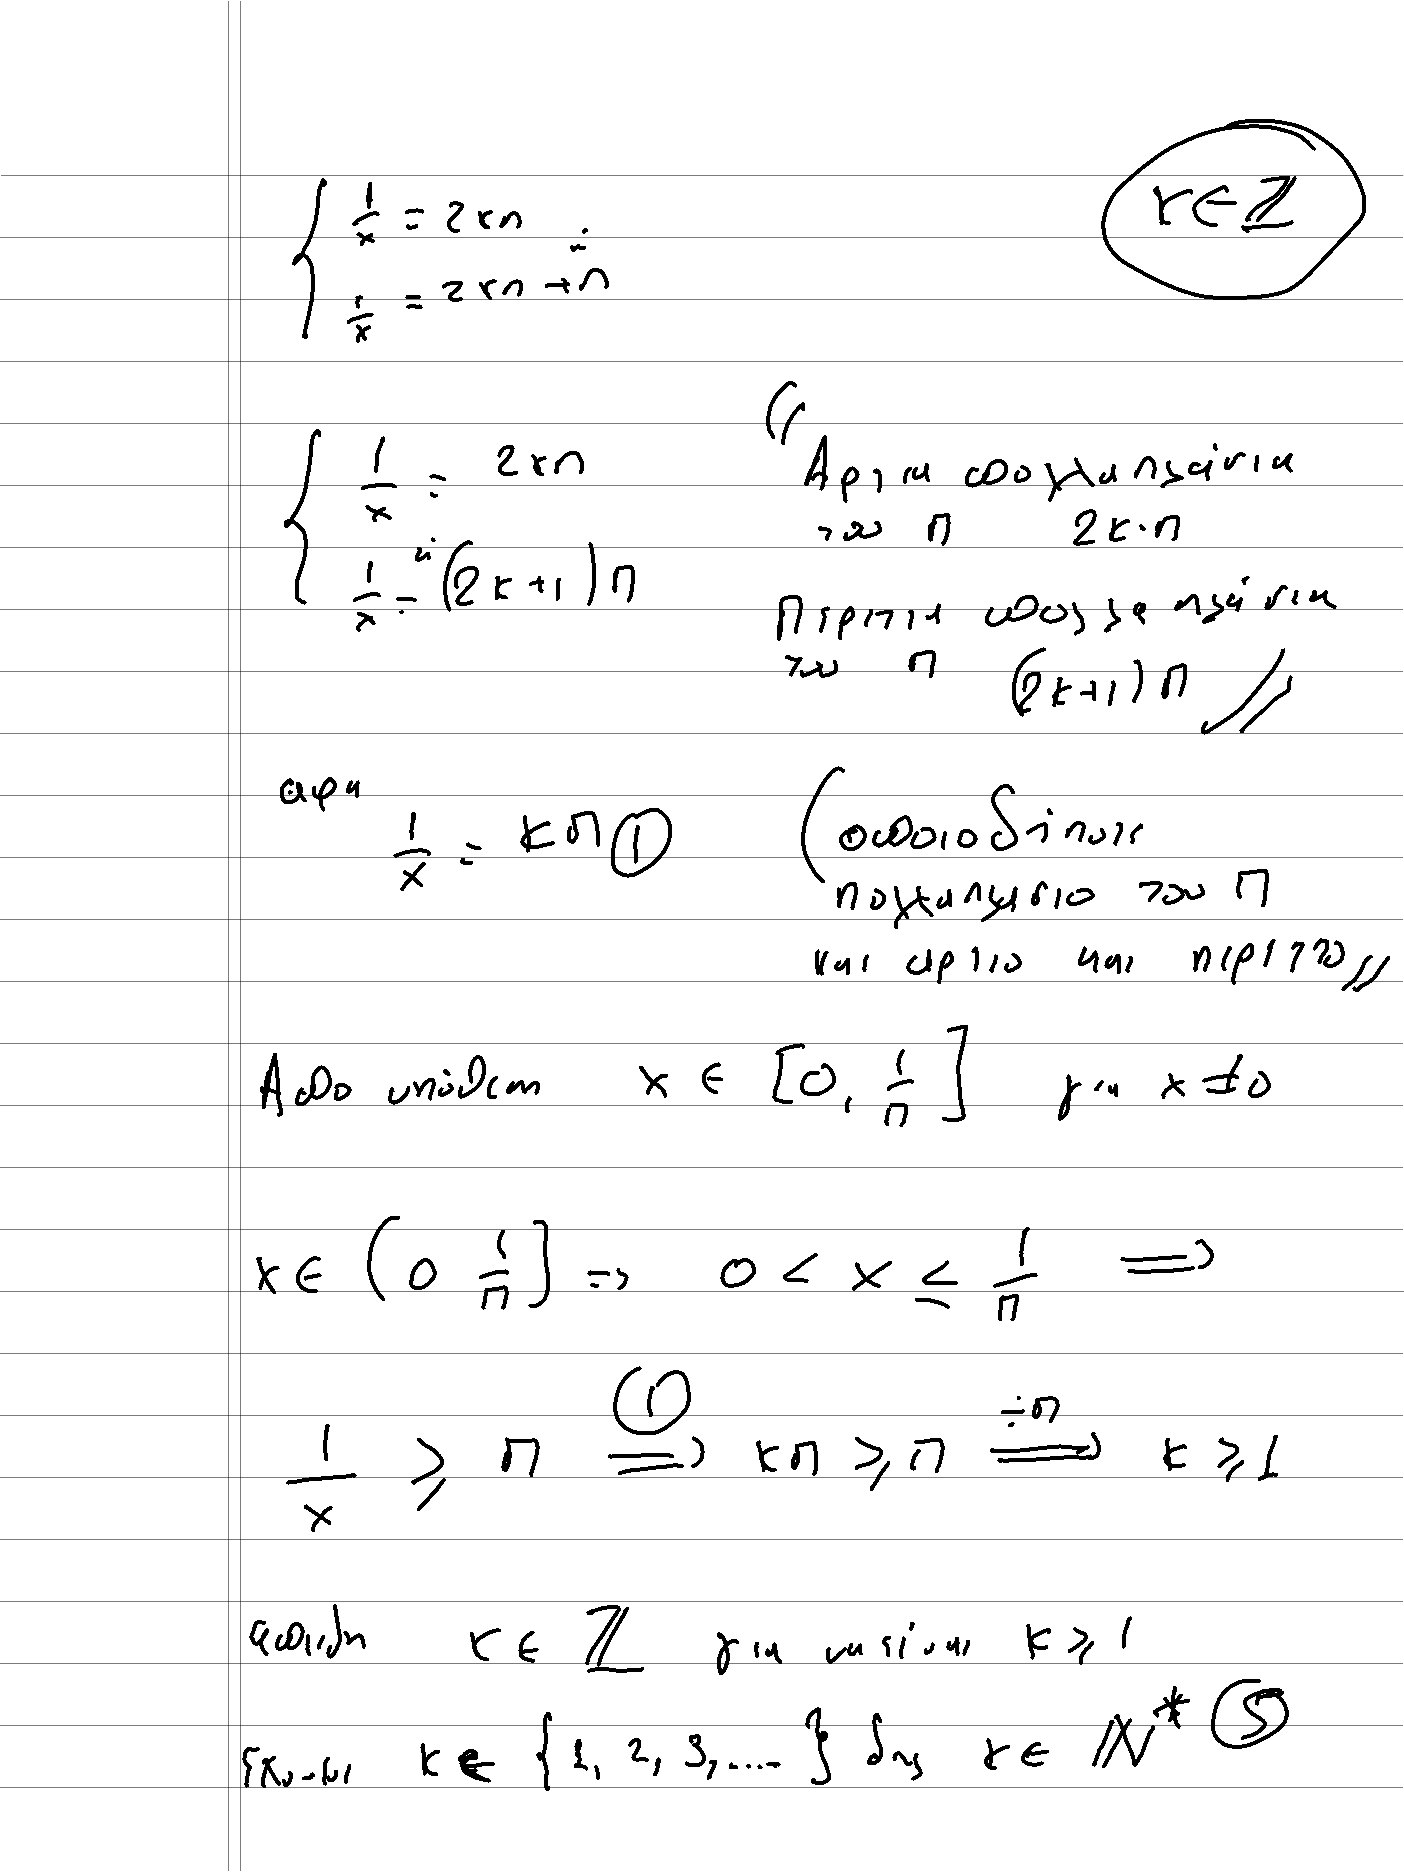 1/x = 2κπ κ∈ℤ
ή
1/x = 2κπ + π
1/x = 2κπ
ή
1/x = (2κ+1)π
"Άρτια πολλαπλάσια
του π 2κ·π
Περιττά πολλαπλάσια
του π (2κ+1)π"
αρα
1/x = κπ ①
(οποιοδήποτε
πολλαπλάσιο του π
και αρτιο και περιττο"
Απο υπόθεση x ∈ [0, 1/π] για x ≠ 0
x ∈ (0 1/π] => 0 < x ≤ 1/π =>
1/x ≥ π =①=> κπ ≥ π =÷π=> κ ≥ 1
επειδη κ ∈ ℤ για να είναι κ ≥ 1
κ ∈ {1, 2, 3, ....} δηλ κ ∈ ℕ* ⑤